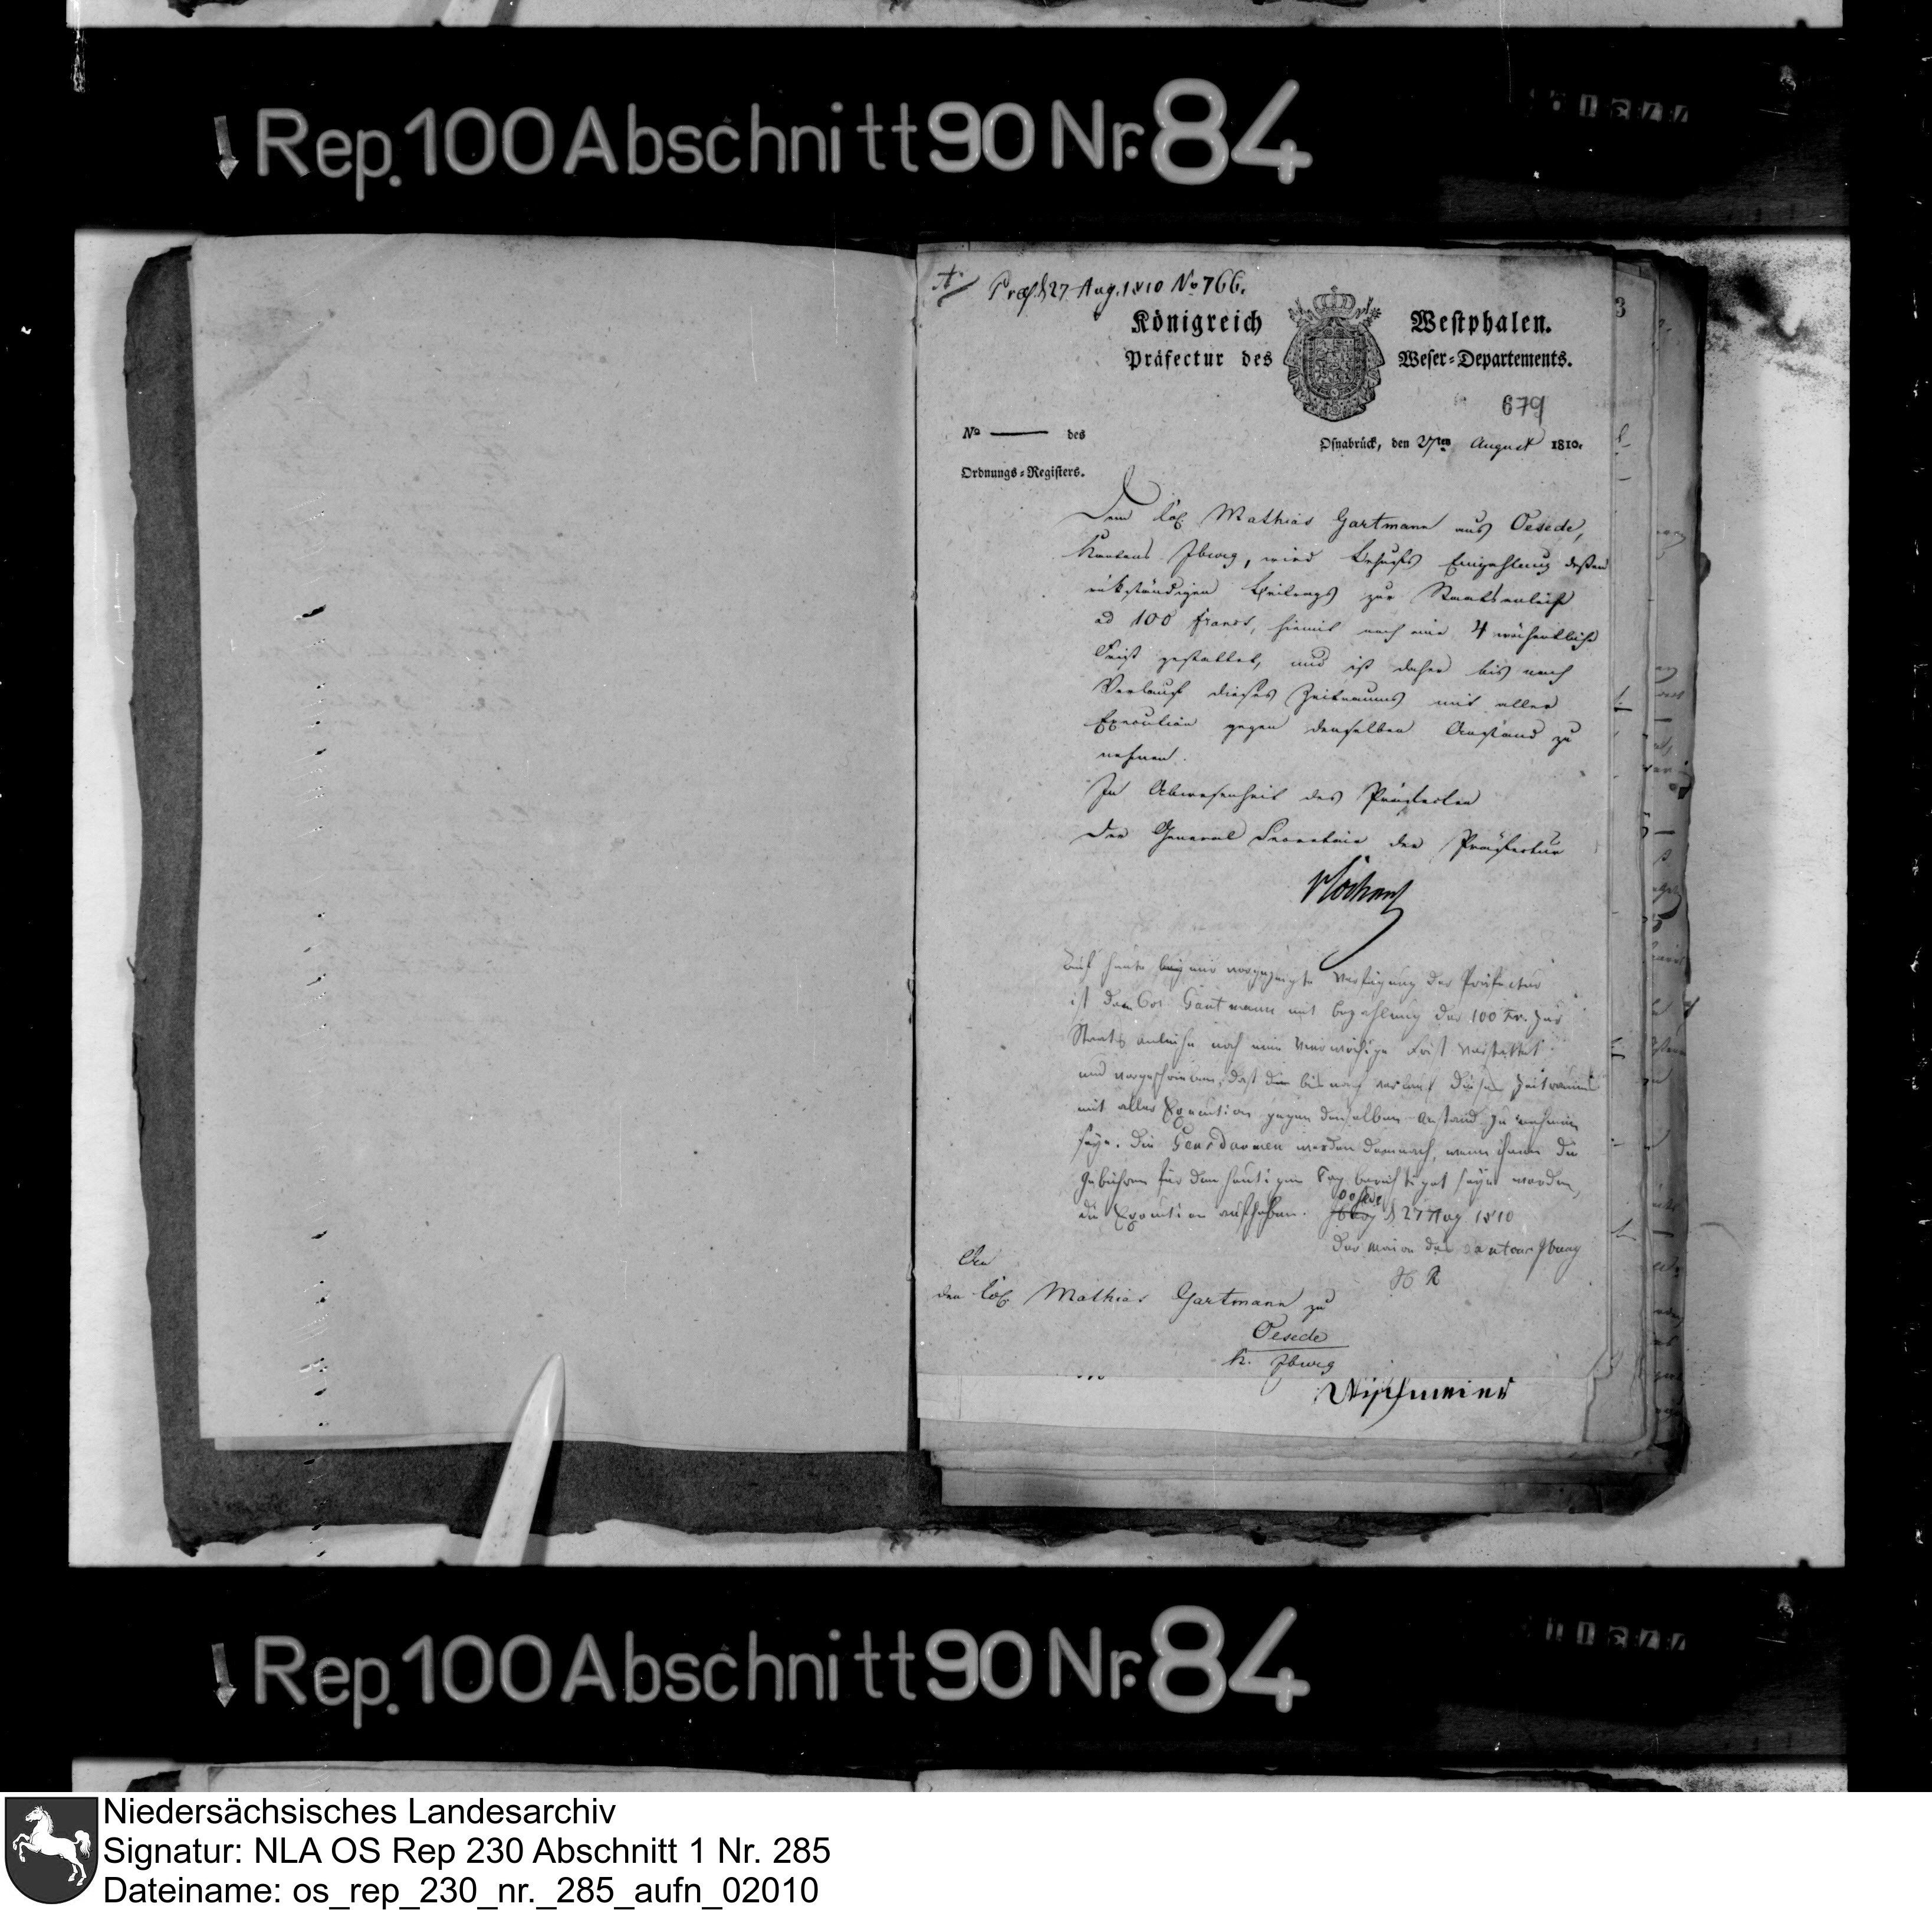 Rep. 100 Abschnitt 90 Nr. 84
A. Präs. d 27 Aug. 1810 No 766.
Königreich Westphalen.
Präfectur des Weser-Departements.
679
No — des
Ordnungs-Registers.
Osnabrück, den 27ten August 1810.
Dem Col. Mathias Gartmann aus Oesede,
Kantons Iburg, wird behufs Einzahlung deßen
rükständigen Beitrags zur Staatsanleihe
ad 100 Francs, hiemit noch eine 4 wöchentliche
Frist gestattet, und ist daher bis nach
Verlauf dieses Zeitraums mit aller
Execution gegen denselben Anstand zu
nehmen.
In Abwesenheit des Präfecten
Der General Secretair der Präfectur
Auf heute bey mir vorgezeigte Verfügung der Präfectur
ist dem Col. Gartmann mit Bezahlung der 100 Fr. zur
Staats anleihe noch eine vierwöchige Frist verstattet
und vorgeschrieben, daß bis nach verlauf dieses Zeitraums
mit aller Execution gegen denselben Anstand zu nehmen
seye. Die Gensdarmen werden demnach, wenn ihnen die
Gebühren für den heutigen Tag berichtiget seyn werden,
die Execution aufheben. Iburg Oesede d 27 Aug 1810
Der Maire des Canton Iburg
An
den Col. Mathias Gartmann zu
Oesede
K. Iburg
Rep. 100 Abschnitt 90 Nr. 84
Niedersächsisches Landesarchiv
Signatur: NLA OS Rep 230 Abschnitt 1 Nr. 285
Dateiname: os_rep_230_nr._285_aufn_02010